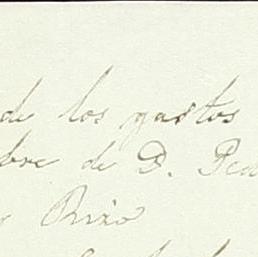 de los gastos
bre de D. Ped
Riño